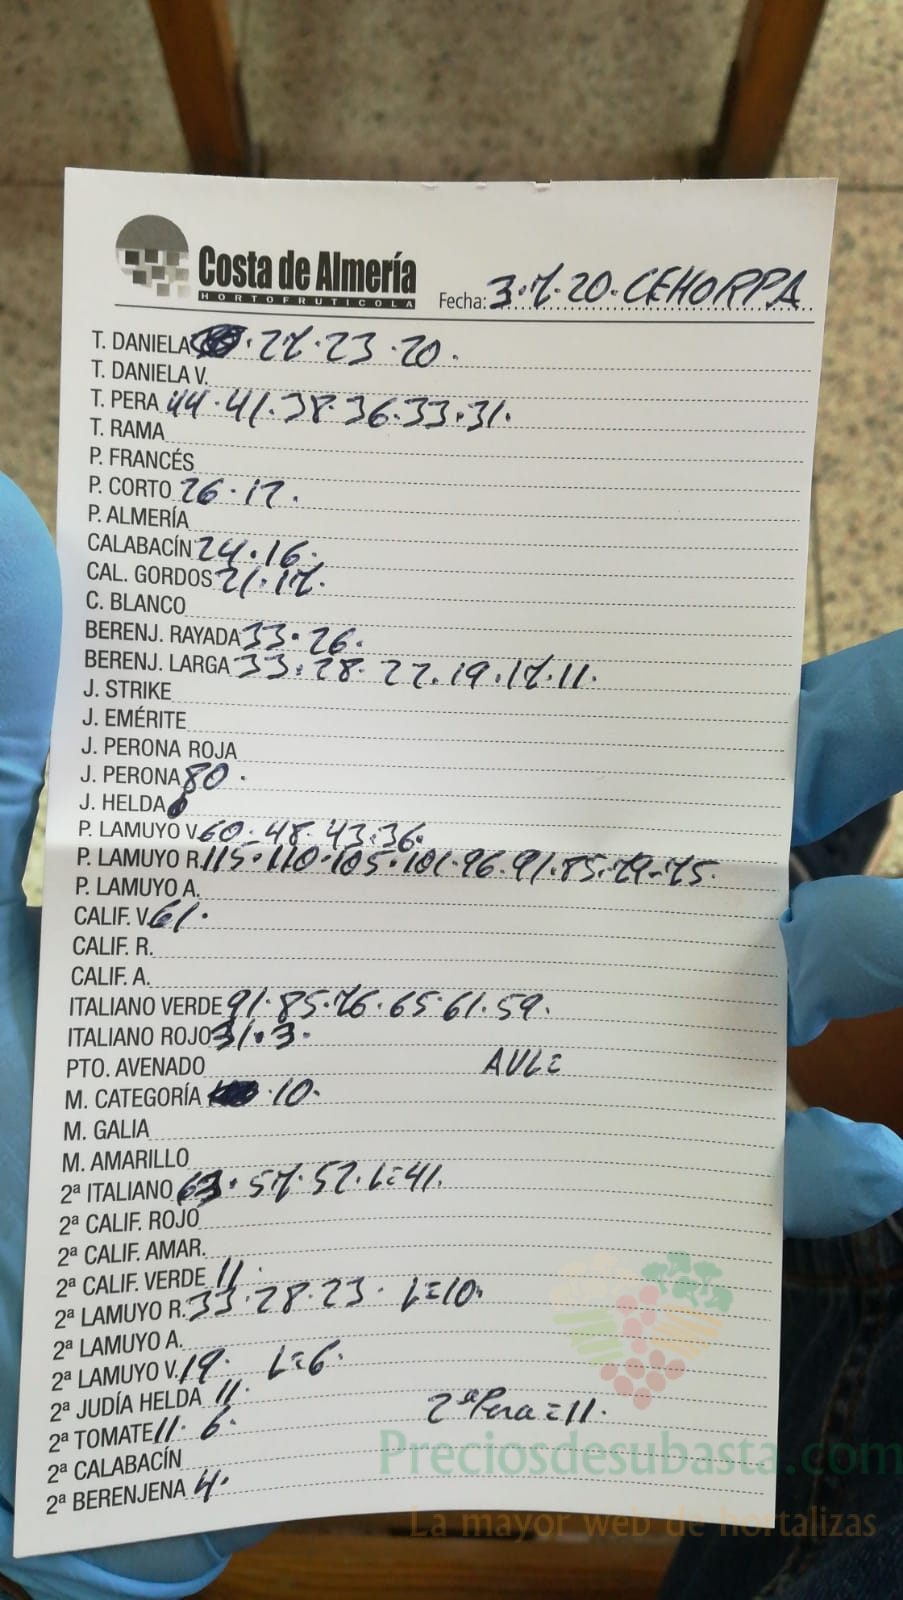 Costa de Almería
HORTOFRUTICOLA
Fecha: 3.7.20. CEHORPA
T. DANIELA . 27 . 23 . 20 .
T. DANIELA V.
T. PERA 44 . 41 . 38 . 36 . 33 . 31 .
T. RAMA
P. FRANCÉS
P. CORTO 26 . 12 .
P. ALMERÍA
CALABACÍN 24 . 16 .
CAL. GORDOS 21 . 17 .
C. BLANCO
BERENJ. RAYADA 33 . 26 .
BERENJ. LARGA 33 . 28 . 22 . 19 . 17 . 11 .
J. STRIKE
J. EMÉRITE
J. PERONA ROJA
J. PERONA 80 .
J. HELDA
P. LAMUYO V. 60 . 48 . 43 . 36 .
P. LAMUYO R. 115 . 110 . 105 . 101 . 96 . 91 . 85 . 79 - 75 .
P. LAMUYO A.
CALIF. V. 61 .
CALIF. R.
CALIF. A.
ITALIANO VERDE 91 . 85 . 76 . 65 . 61 . 59 .
ITALIANO ROJO 31 . 3 .
PTO. AVENADO
M. CATEGORÍA . 10 .
M. GALIA
M. AMARILLO
2ª ITALIANO 63 . 57 . 52 . L=41 .
2ª CALIF. ROJO
2ª CALIF. AMAR.
2ª CALIF. VERDE 11 .
2ª LAMUYO R. 33 . 28 . 23 . L=10 .
2ª LAMUYO A.
2ª LAMUYO V. 19 . L=6 .
2ª JUDÍA HELDA 11 .
2ª Pera = 11 .
2ª TOMATE 11 . 6 .
2ª CALABACÍN
2ª BERENJENA 4 .
Preciosdesubasta.com
La mayor web de hortalizas